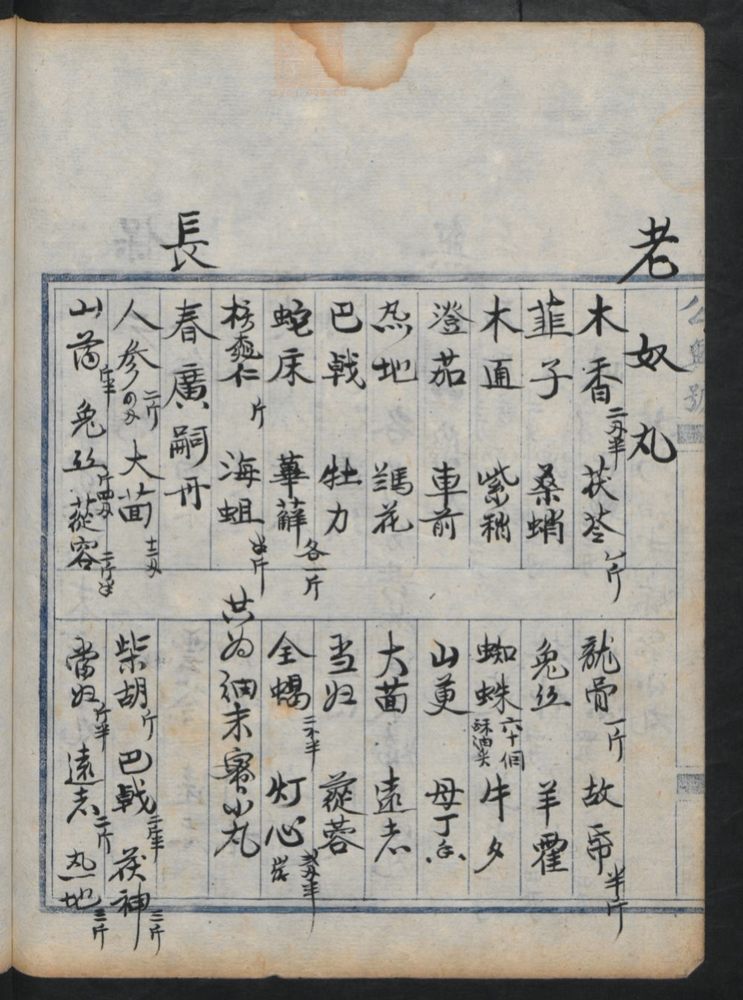 老奴丸
木香二刄半 茯苓一斤 龍骨一斤 故帋半斤
韮子 桑蛸 兎丝 羊霍
木通 紫稍 蜘蛛六十個酥油炙 牛夕
澄茄 車前 山萸 母丁香
熟地 馬花 大茴 遠志
巴戟 牡力 当归 蓯蓉
蛇床 萆薢各一斤 全蝎二刄半 灯心
核桃仁斤 海蛆半斤 共为細末蜜小丸
長春廣嗣丹
人参二斤 大茴 柴胡斤 巴戟 茯神三斤
山药斤半 兎丝 蓯容 當归斤半 遠志二斤 熟地三斤